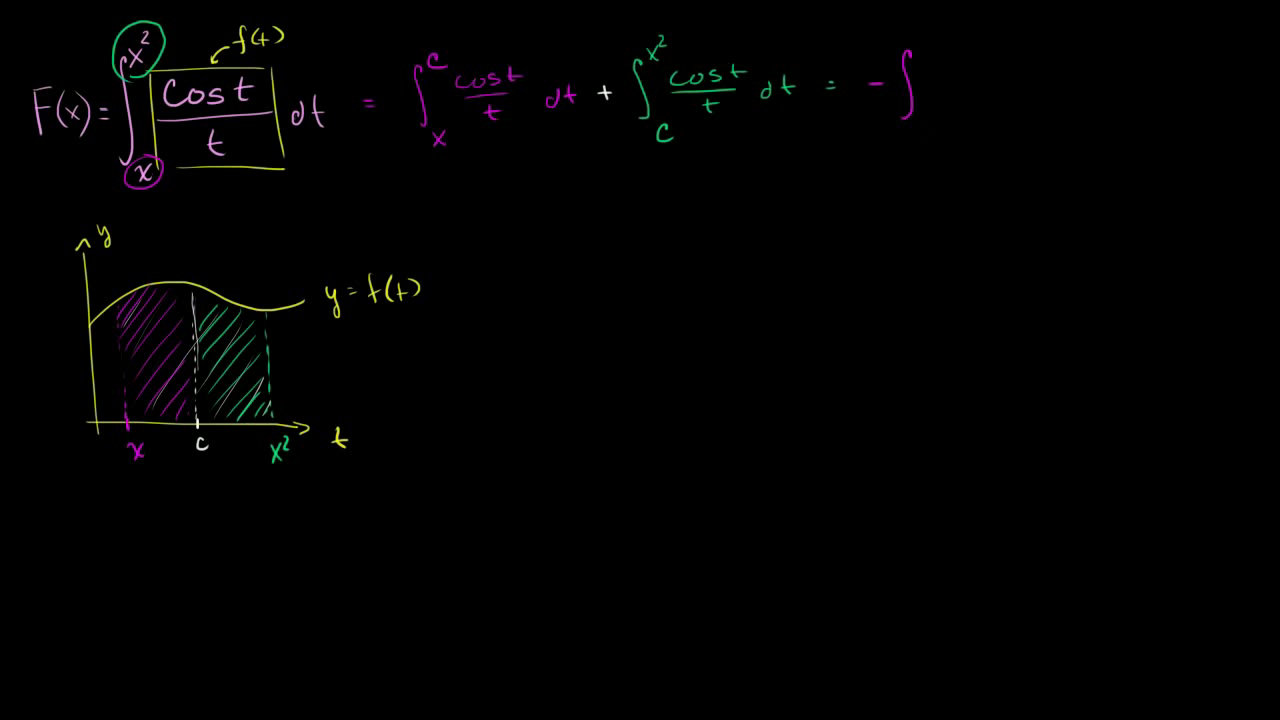 f(t)
F(x) = ∫ₓ^(x²) cos t / t dt = ∫ₓ^c cos t / t dt + ∫_c^(x²) cos t / t dt = - ∫
y
y = f(t)
x c x² t